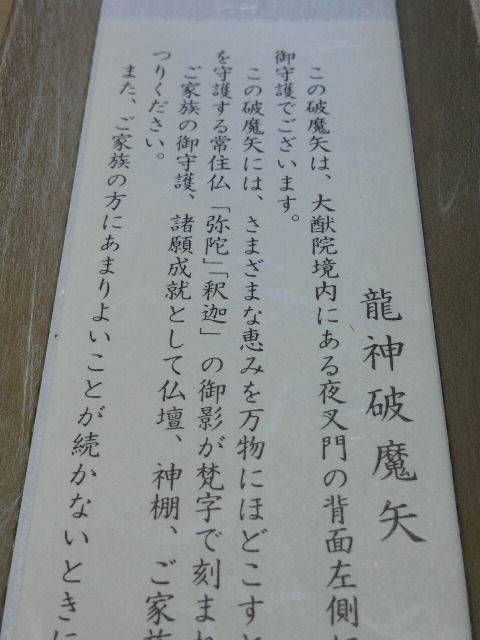 龍神破魔矢
この破魔矢は、大猷院境内にある夜叉門の背面左側に
御守護でございます。
この破魔矢には、さまざまな恵みを万物にほどこすと
を守護する常住仏「弥陀」「釈迦」の御影が梵字で刻まれ
ご家族の御守護、諸願成就として仏壇、神棚、ご家族
つりください。
また、ご家族の方にあまりよいことが続かないときに